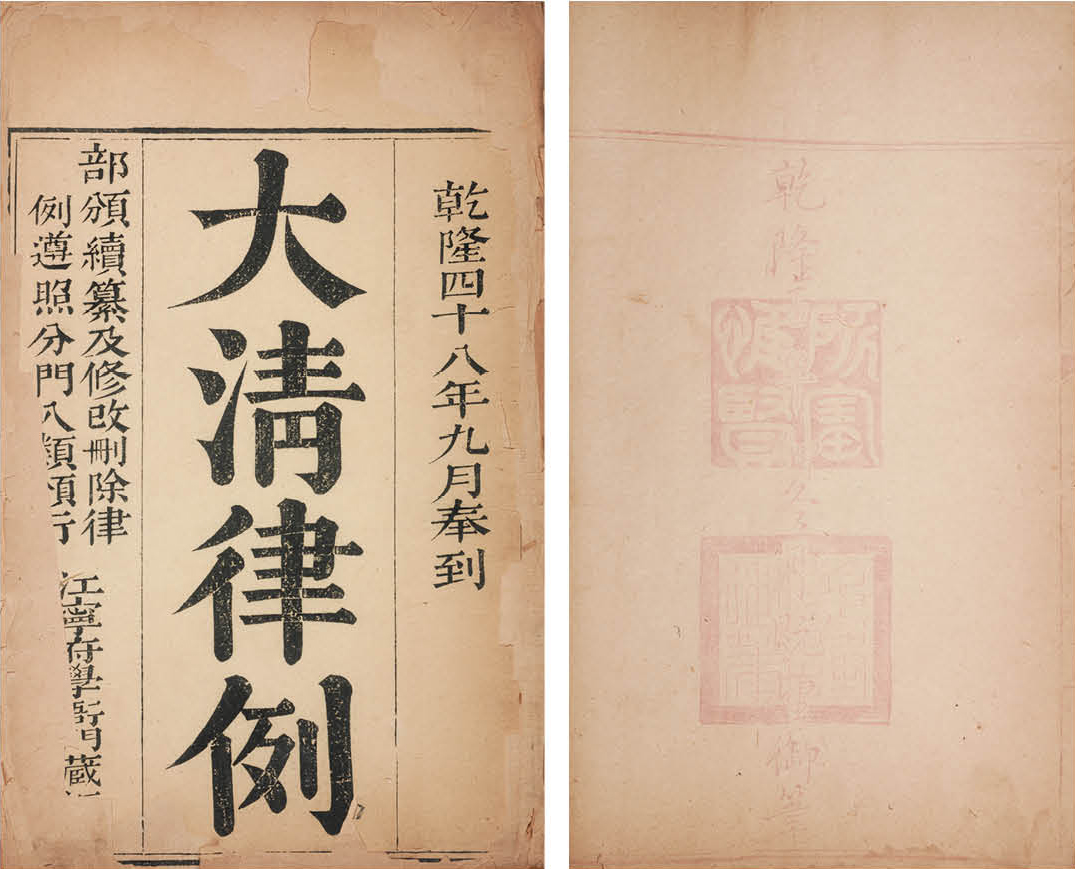 乾隆四十八年九月奉到
大清律例
部頒續纂及修改刪除律
例遵照分門入類頒行
江寧府學衙門藏
乾隆
御筆
所寶惟賢